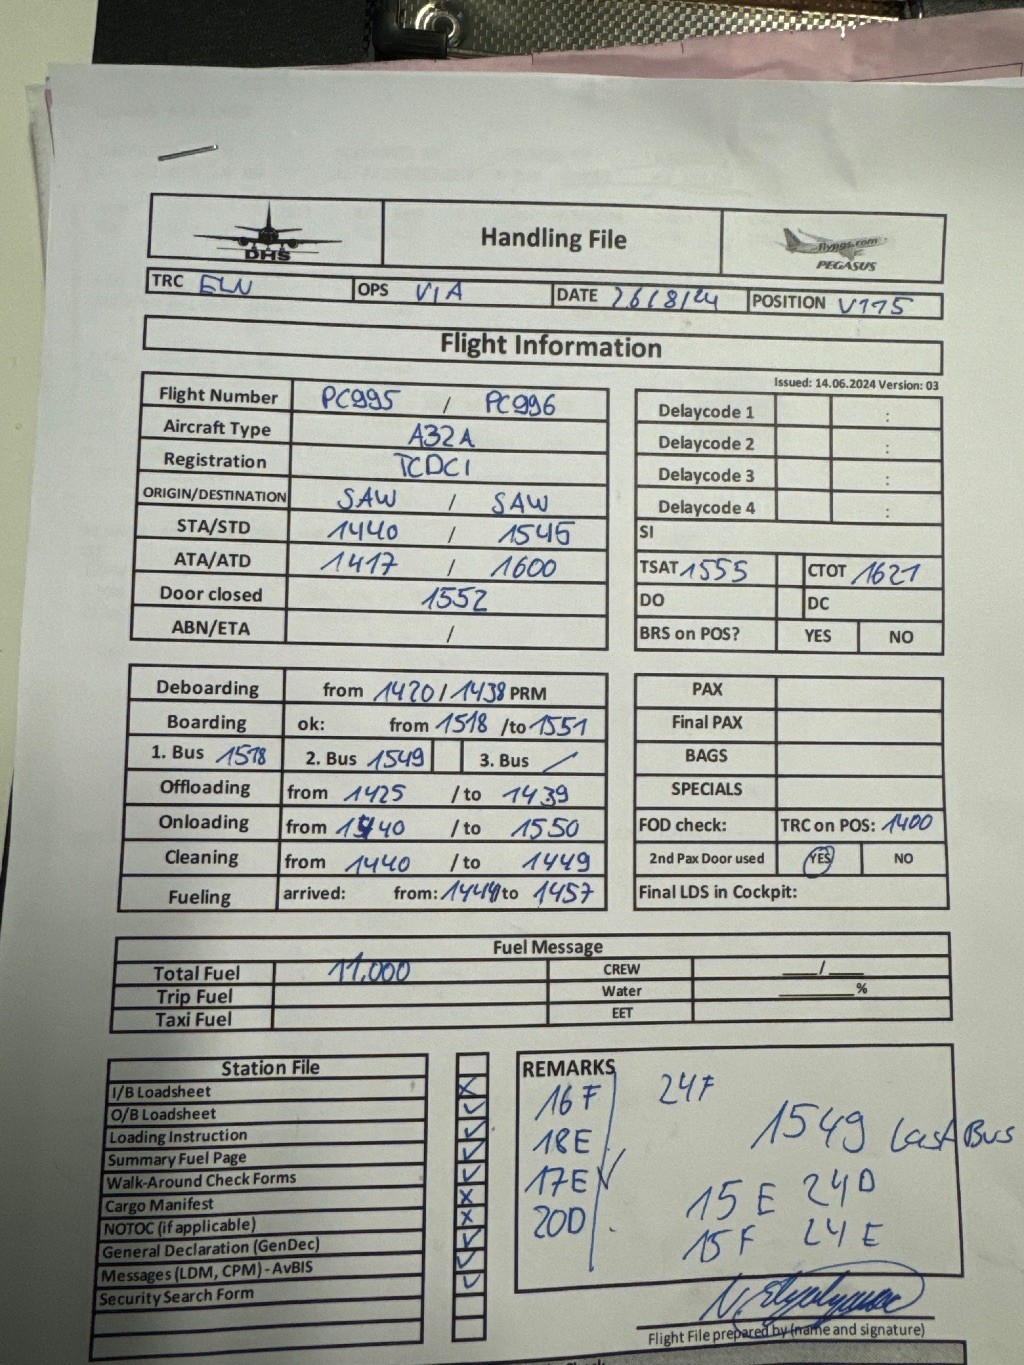 DHS
Handling File
flypgs.com
PEGASUS
TRC ELN OPS VIA DATE 26/8/24 POSITION V175
Flight Information
Issued: 14.06.2024 Version: 03
Flight Number PC995 / PC996
Aircraft Type A32A
Registration TCDCI
ORIGIN/DESTINATION SAW / SAW
STA/STD 1440 / 1545
ATA/ATD 1417 / 1600
Door closed 1552
ABN/ETA /
Delaycode 1 :
Delaycode 2 :
Delaycode 3 :
Delaycode 4 :
SI
TSAT 1555 CTOT 1621
DO DC
BRS on POS? YES NO
Deboarding from 1420 / 1438 PRM
Boarding ok: from 1518 /to 1551
1. Bus 1518 2. Bus 1549 3. Bus /
Offloading from 1425 / to 1439
Onloading from 1440 / to 1550
Cleaning from 1440 / to 1449
Fueling arrived: from: 1444/to 1457
PAX
Final PAX
BAGS
SPECIALS
FOD check: TRC on POS: 1400
2nd Pax Door used YES NO
Final LDS in Cockpit:
Fuel Message
Total Fuel 11,000 CREW ___/___
Trip Fuel Water ______%
Taxi Fuel EET
Station File
I/B Loadsheet
O/B Loadsheet
Loading Instruction
Summary Fuel Page
Walk-Around Check Forms
Cargo Manifest
NOTOC (if applicable)
General Declaration (GenDec)
Messages (LDM, CPM) - AvBIS
Security Search Form
REMARKS
16F 24F
18E 1549 Last Bus
17E 15E 24D
20D 15F 24E
Flight File prepared by (name and signature)